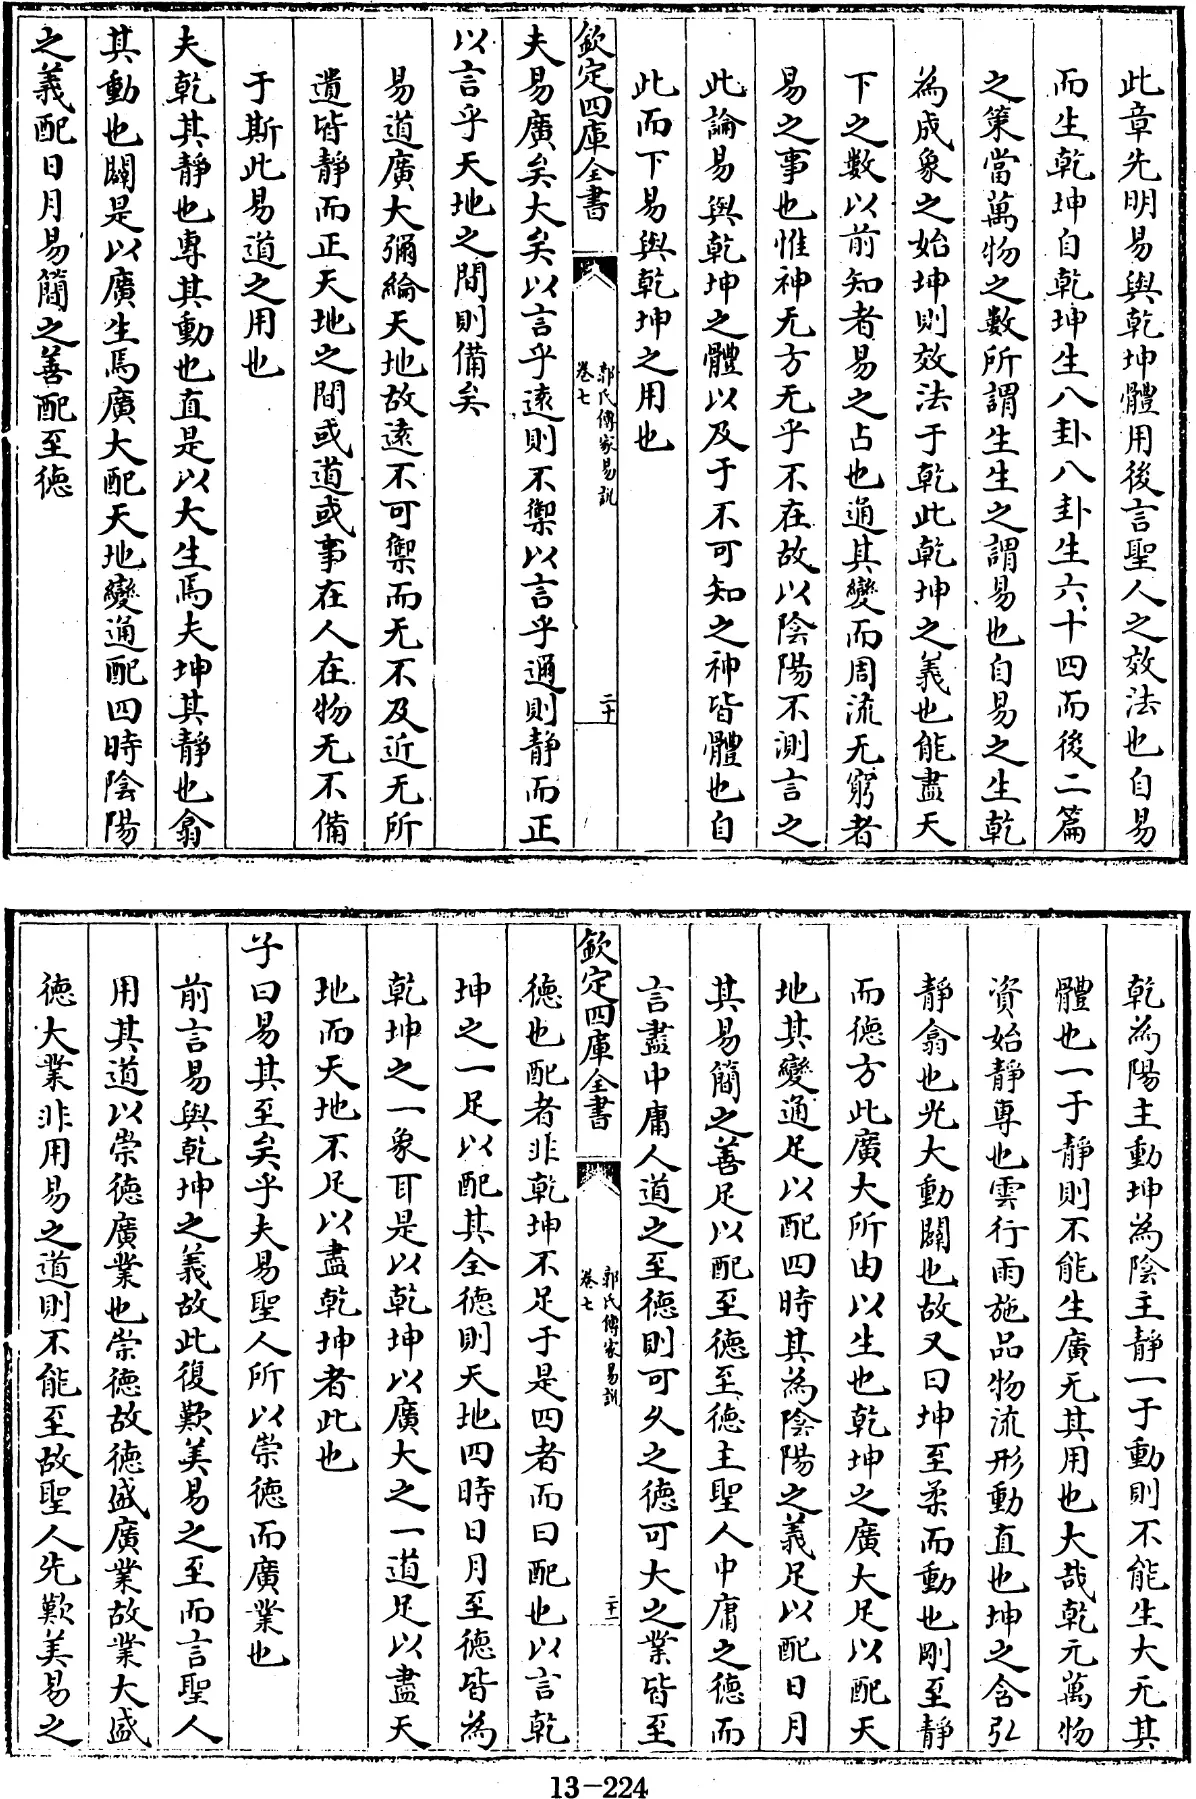 此章先明易與乾坤體用後言聖人之效法也自易
而生乾坤自乾坤生八卦八卦生六十四而後二篇
之策當萬物之數所謂生生之謂易也自易之生乾
為成象之始坤則效法于乾此乾坤之義也能盡天
下之數以前知者易之占也通其變而周流无窮者
易之事也惟神无方无乎不在故以陰陽不測言之
此論易與乾坤之體以及于不可知之神皆體也自
此而下易與乾坤之用也
欽定四庫全書
郭氏傳家易說
卷七
二十
夫易廣矣大矣以言乎遠則不禦以言乎邇則靜而正
以言乎天地之間則備矣
易道廣大彌綸天地故遠不可禦而无不及近无所
遺皆靜而正天地之間或道或事在人在物无不備
于斯此易道之用也
夫乾其靜也專其動也直是以大生焉夫坤其靜也翕
其動也闢是以廣生焉廣大配天地變通配四時陰陽
之義配日月易簡之善配至德
乾為陽主動坤為陰主靜一于動則不能生大无其
體也一于靜則不能生廣无其用也大哉乾元萬物
資始靜專也雲行雨施品物流形動直也坤之含弘
靜翕也光大動闢也故又曰坤至柔而動也剛至靜
而德方此廣大所由以生也乾坤之廣大足以配天
地其變通足以配四時其為陰陽之義足以配日月
其易簡之善足以配至德至德主聖人中庸之德而
言盡中庸人道之至德則可久之德可大之業皆至
欽定四庫全書
郭氏傳家易說
卷七
二十一
德也配者非乾坤不足于是四者而曰配也以言乾
坤之一足以配其全德則天地四時日月至德皆為
乾坤之一象耳是以乾坤以廣大之一道足以盡天
地而天地不足以盡乾坤者此也
子曰易其至矣乎夫易聖人所以崇德而廣業也
前言易與乾坤之義故此復歎美易之至而言聖人
用其道以崇德廣業也崇德故德盛廣業故業大盛
德大業非用易之道則不能至故聖人先歎美易之
13-224